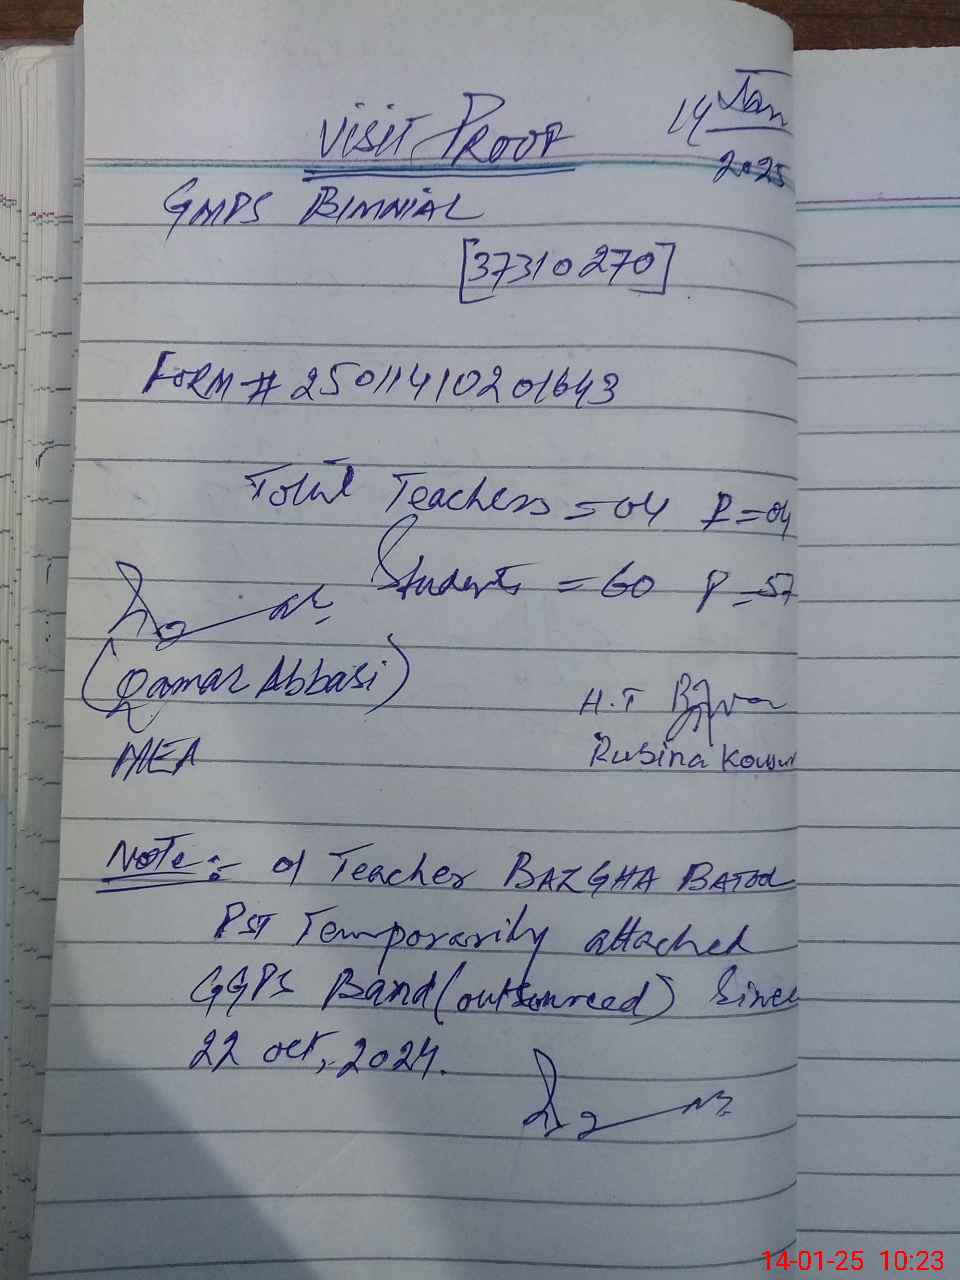 Visit Proof
14 Jan
2025
GMPS BIMNIAL
[37310270]
FORM # 25011410201643
Total Teachers = 04 P = 04
Students = 60 P = 57
(Qamar Abbasi)
MEA
H.T
Rubina Kousar
Note:- 01 Teacher BAZGHA BATOOL
PST Temporarily attached
GGPS Band (outsourced) Since
22 oct, 2024.
14-01-25 10:23